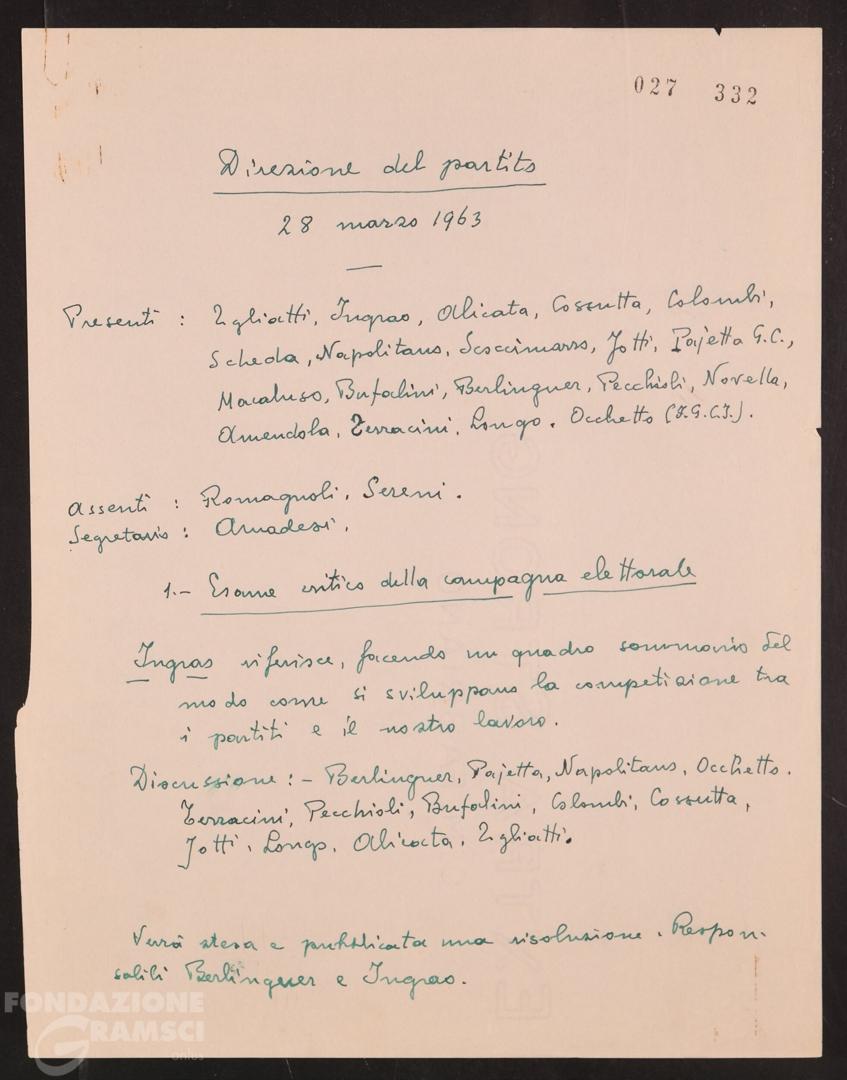 027 332
Direzione del partito
28 marzo 1963
Presenti : Togliatti, Ingrao, Alicata, Cossutta, Colombi,
Scheda, Napolitano, Scoccimarro, Jotti, Pajetta G.C.,
Macaluso, Bufalini, Berlinguer, Pecchioli, Novella,
Amendola, Terracini, Longo. Occhetto (F.G.C.I.).
Assenti : Romagnoli, Sereni.
Segretario : Amadesi.
1.- Esame critico della campagna elettorale
Ingrao riferisce, facendo un quadro sommario del
modo come si sviluppano la competizione tra
i partiti e il nostro lavoro.
Discussione : - Berlinguer, Pajetta, Napolitano, Occhetto.
Terracini, Pecchioli, Bufalini, Colombi, Cossutta,
Jotti. Longo. Alicata. Togliatti.
Verrà stesa e pubblicata una risoluzione. Respon-
sabili Berlinguer e Ingrao.
FONDAZIONE
GRAMSCI
onlus